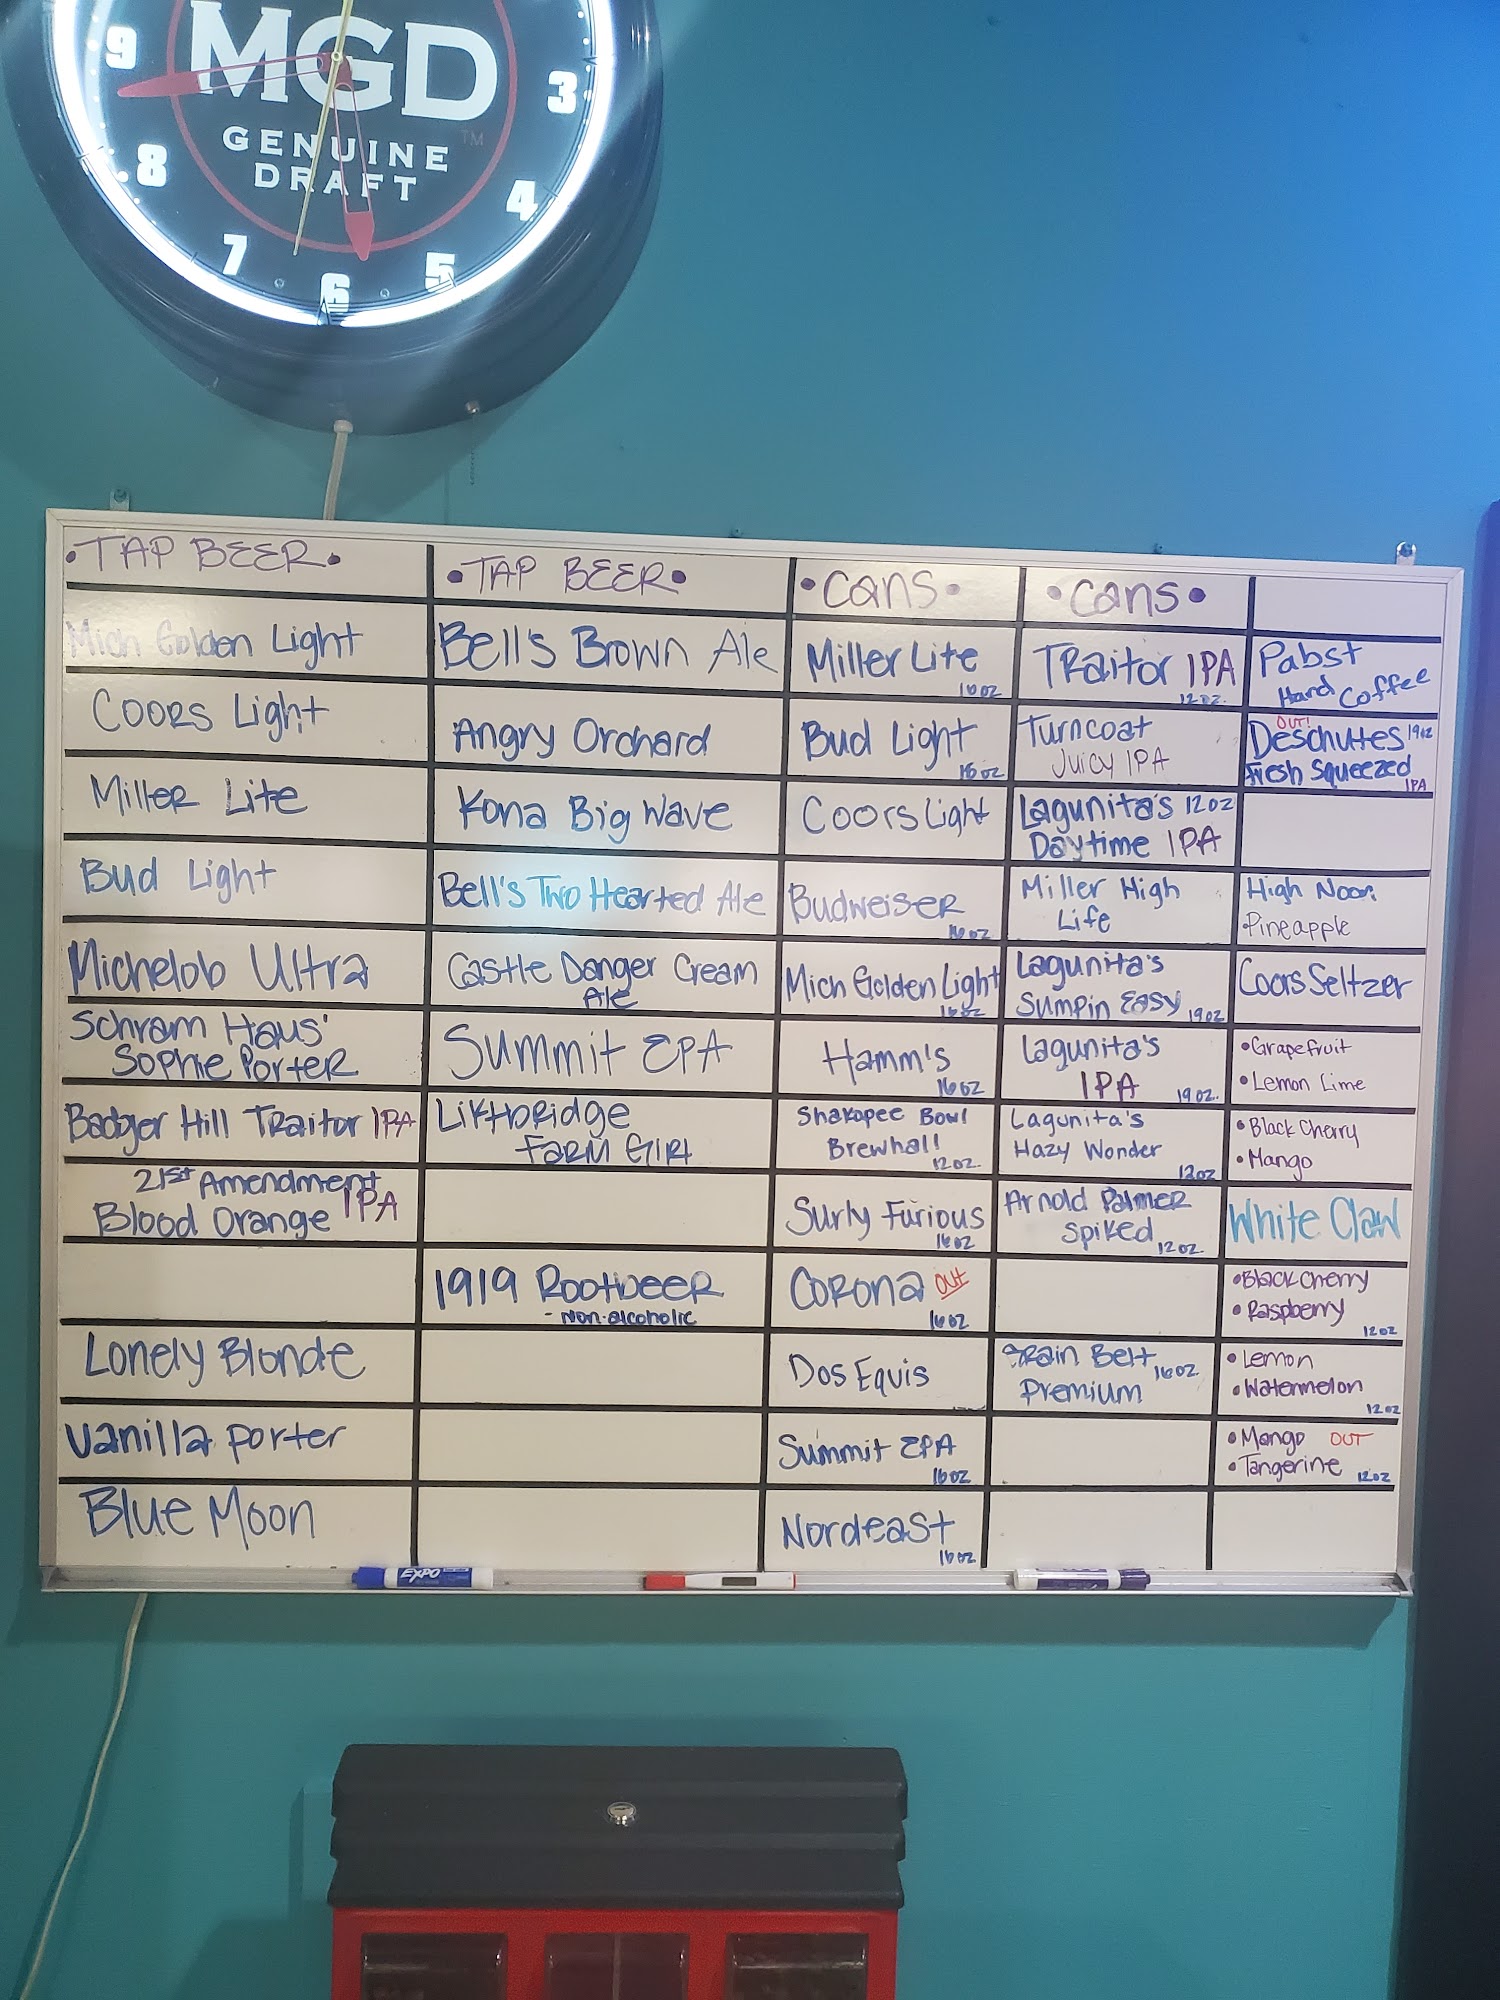 9
MGD
™
3
GENUINE
DRAFT
8
4
7
5
6
•TAP BEER•
Mich Golden Light
Coors Light
Miller Lite
Bud Light
Michelob Ultra
Schram Haus'
Sophie Porter
Badger Hill Traitor IPA
21st Amendment
Blood Orange IPA
Lonely Blonde
Vanilla Porter
Blue Moon
•TAP BEER•
Bell's Brown Ale
Angry Orchard
Kona Big Wave
Bell's Two Hearted Ale
Castle Danger Cream
Ale
Summit EPA
Lifthbridge
Farm Girl
1919 Rootbeer
- Non-alcoholic
•Cans•
Miller Lite
16 oz
Bud Light
16 oz
Coors Light
Budweiser
16 oz
Mich Golden Light
16 oz
Hamm's
16 oz
Shakopee Bowl
Brewhall!
12oz.
Surly Furious
16 oz
Corona OUT
16 oz
Dos Equis
Summit EPA
16 oz
Nordeast
16 oz
•Cans•
Traitor IPA
12oz.
Turncoat
Juicy IPA
Lagunita's 12oz
Daytime IPA
Miller High
Life
Lagunita's
Sumpin Easy 19oz
Lagunita's
IPA 19oz.
Lagunita's
Hazy Wonder
12oz
Arnold Palmer
Spiked 12oz.
Grain Belt 16oz.
Premium
Pabst
Hard Coffee
OUT!
Deschutes 19oz
Fresh Squeezed
IPA
High Noon
Pineapple
Coors Seltzer
•Grapefruit
•Lemon Lime
•Black Cherry
•Mango
White Claw
•Black Cherry
•Raspberry
12oz
•Lemon
•Watermelon
12oz
•Mango OUT
•Tangerine 12oz
EXPO